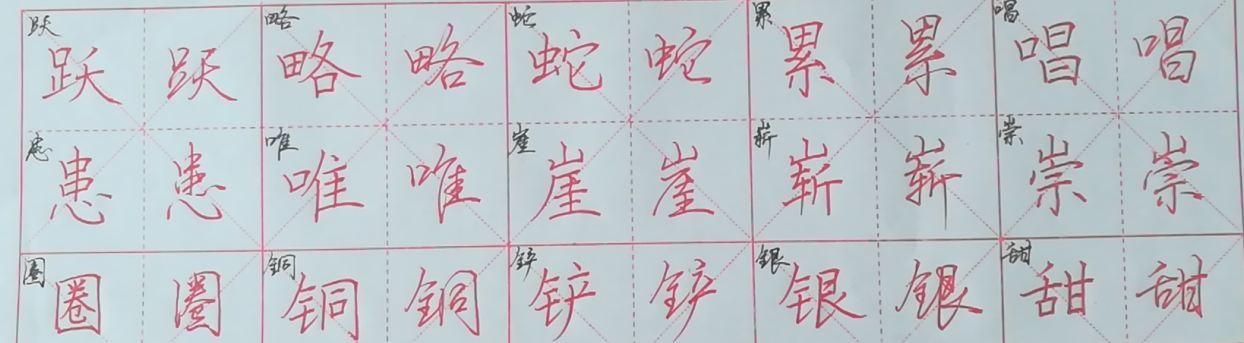 跃 跃 跃 略 略 略 蛇 蛇 蛇 累 累 累 唱 唱 唱
患 患 患 唯 唯 唯 崖 崖 崖 崭 崭 崭 崇 崇 崇
圈 圈 圈 铜 铜 铜 铲 铲 铲 银 银 银 甜 甜 甜